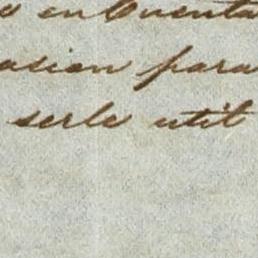 en Cuenta
asion para
serle util